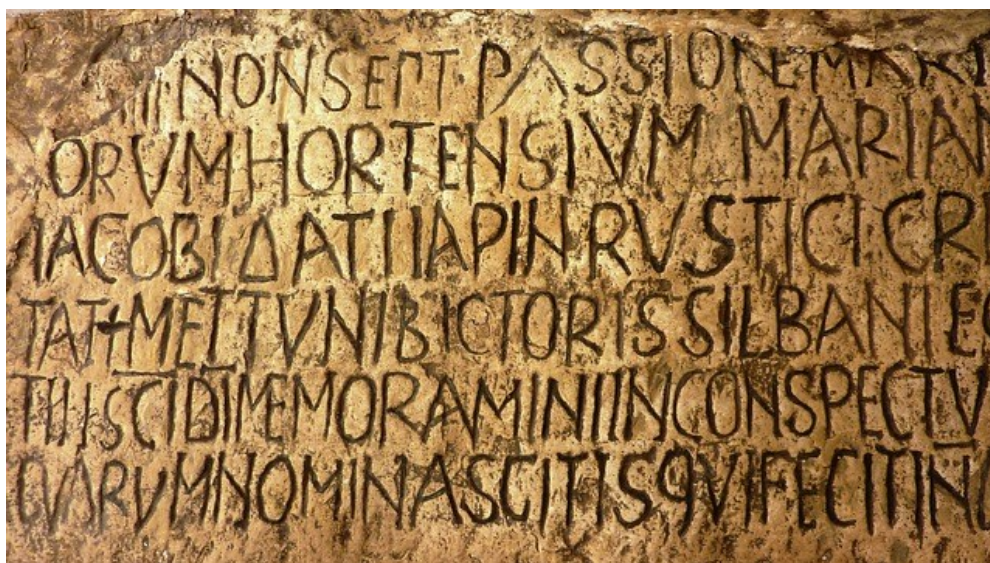 IIII NONSEPT·PASSIONEMARTI
ORVMHORTENSIVM MARIAN
IACOBI DATIIAPINRVSTICICR
TAT+METTVNIBICTORISSILBANIEG
SCIDIMEMORAMINIINCONSPECTV
QVARVMNOMINASCITISQVIFECITIN